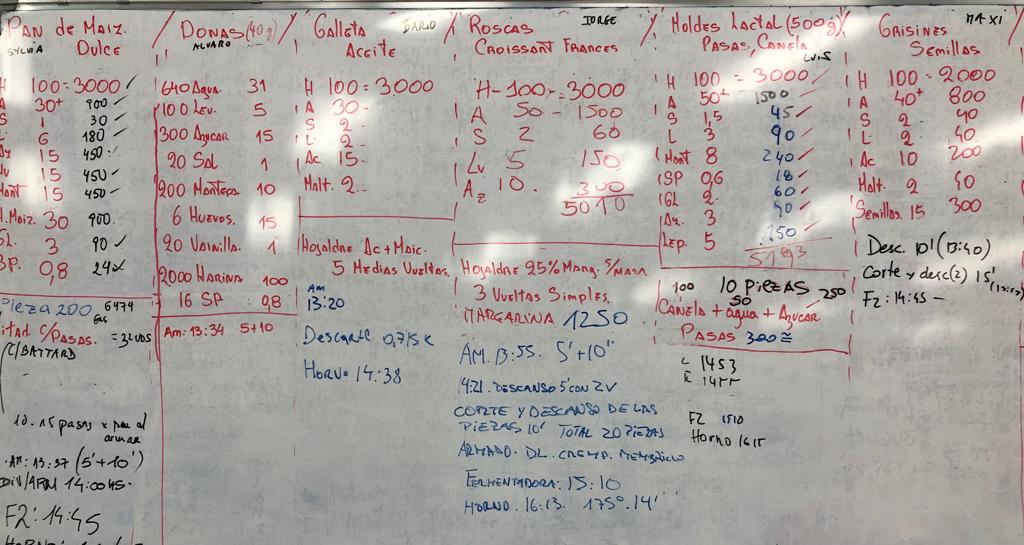 PAN de MAIZ.
SYLVIA DULCE
H 100 = 3000 ✓
A 30+ 900 ✓
S 1 30 ✓
L 6 180 ✓
Az 15 450
Hu 15 450 ✓
Mant 15 450
H.Maiz. 30 900.
GL. 3 90 ✓
SP. 0,8 24 ✓
Pieza 200 6474
Mitad. c/Pasas. = 32 uds
C/BATTARD
10-15 pasas x pan al
armar
AM: 13:37 (5'+10')
DIV/ARM 14:00
F2: 14:45
DONAS (40g)
ALVARO
640 Agua. 31
100 Lev. 5
300 Azucar 15
20 Sal 1
200 Manteca 10
6 Huevos. 15
20 Vainilla. 1
2000 Harina 100
16 SP 0,8
Am: 13:34 5+10
Galleta DARIO
Aceite
H 100 = 3000
A 30-
S 2-
L 2-
Ac 15-
Malt. 2--
Hojaldre Ac + Maic.
5 Medias Vueltas.
AM
13:20
Descarte 0,715K
HORNO 14:38
Roscas JORGE
CROISSANT FRANCES
H-100-=3000
A 50 - 1500
S 2 60
Lv 5 150
Az 10. 300
5010
HOJALDRE 25% MARG. S/MASA
3 Vueltas Simples.
MARGARINA 1250
AM. 13:55. 5'+10''
14:21. DESCANSO 5' CON 2V
CORTE Y DESCANSO DE LAS
PIEZAS 10' TOTAL 20 PIEZAS
ARMADO. DL. CREMA. MEMBRILLO
FERMENTADORA: 15:10
HORNO. 16:13. 175°. 14'
Moldes Lactal (500g)
PASAS, CANELA
LUIS
H 100 = 3000 ✓
A 50+ 1500 ✓
S 1,5 45 ✓
L 3 90 ✓
Mant 8 240 ✓
SP 0,6 18 ✓
GL 2. 60 ✓
Az. 3 90 ✓
Lep. 5 150 ✓
5193
100 10 PIEZAS
50 250
CANELA + agua + Azucar.
PASAS 300
C 1453
F2 1510
HORNO 1615
GRISINES MAXI
Semillas
H 100 = 2000
A 40+ 800
S 2 40
L 2 40
Ac 10 200
Malt. 2 40
Semillas 15 300
Desc. 10' (13:40)
Corte y desc(2) 15'
F2: 14:45 -